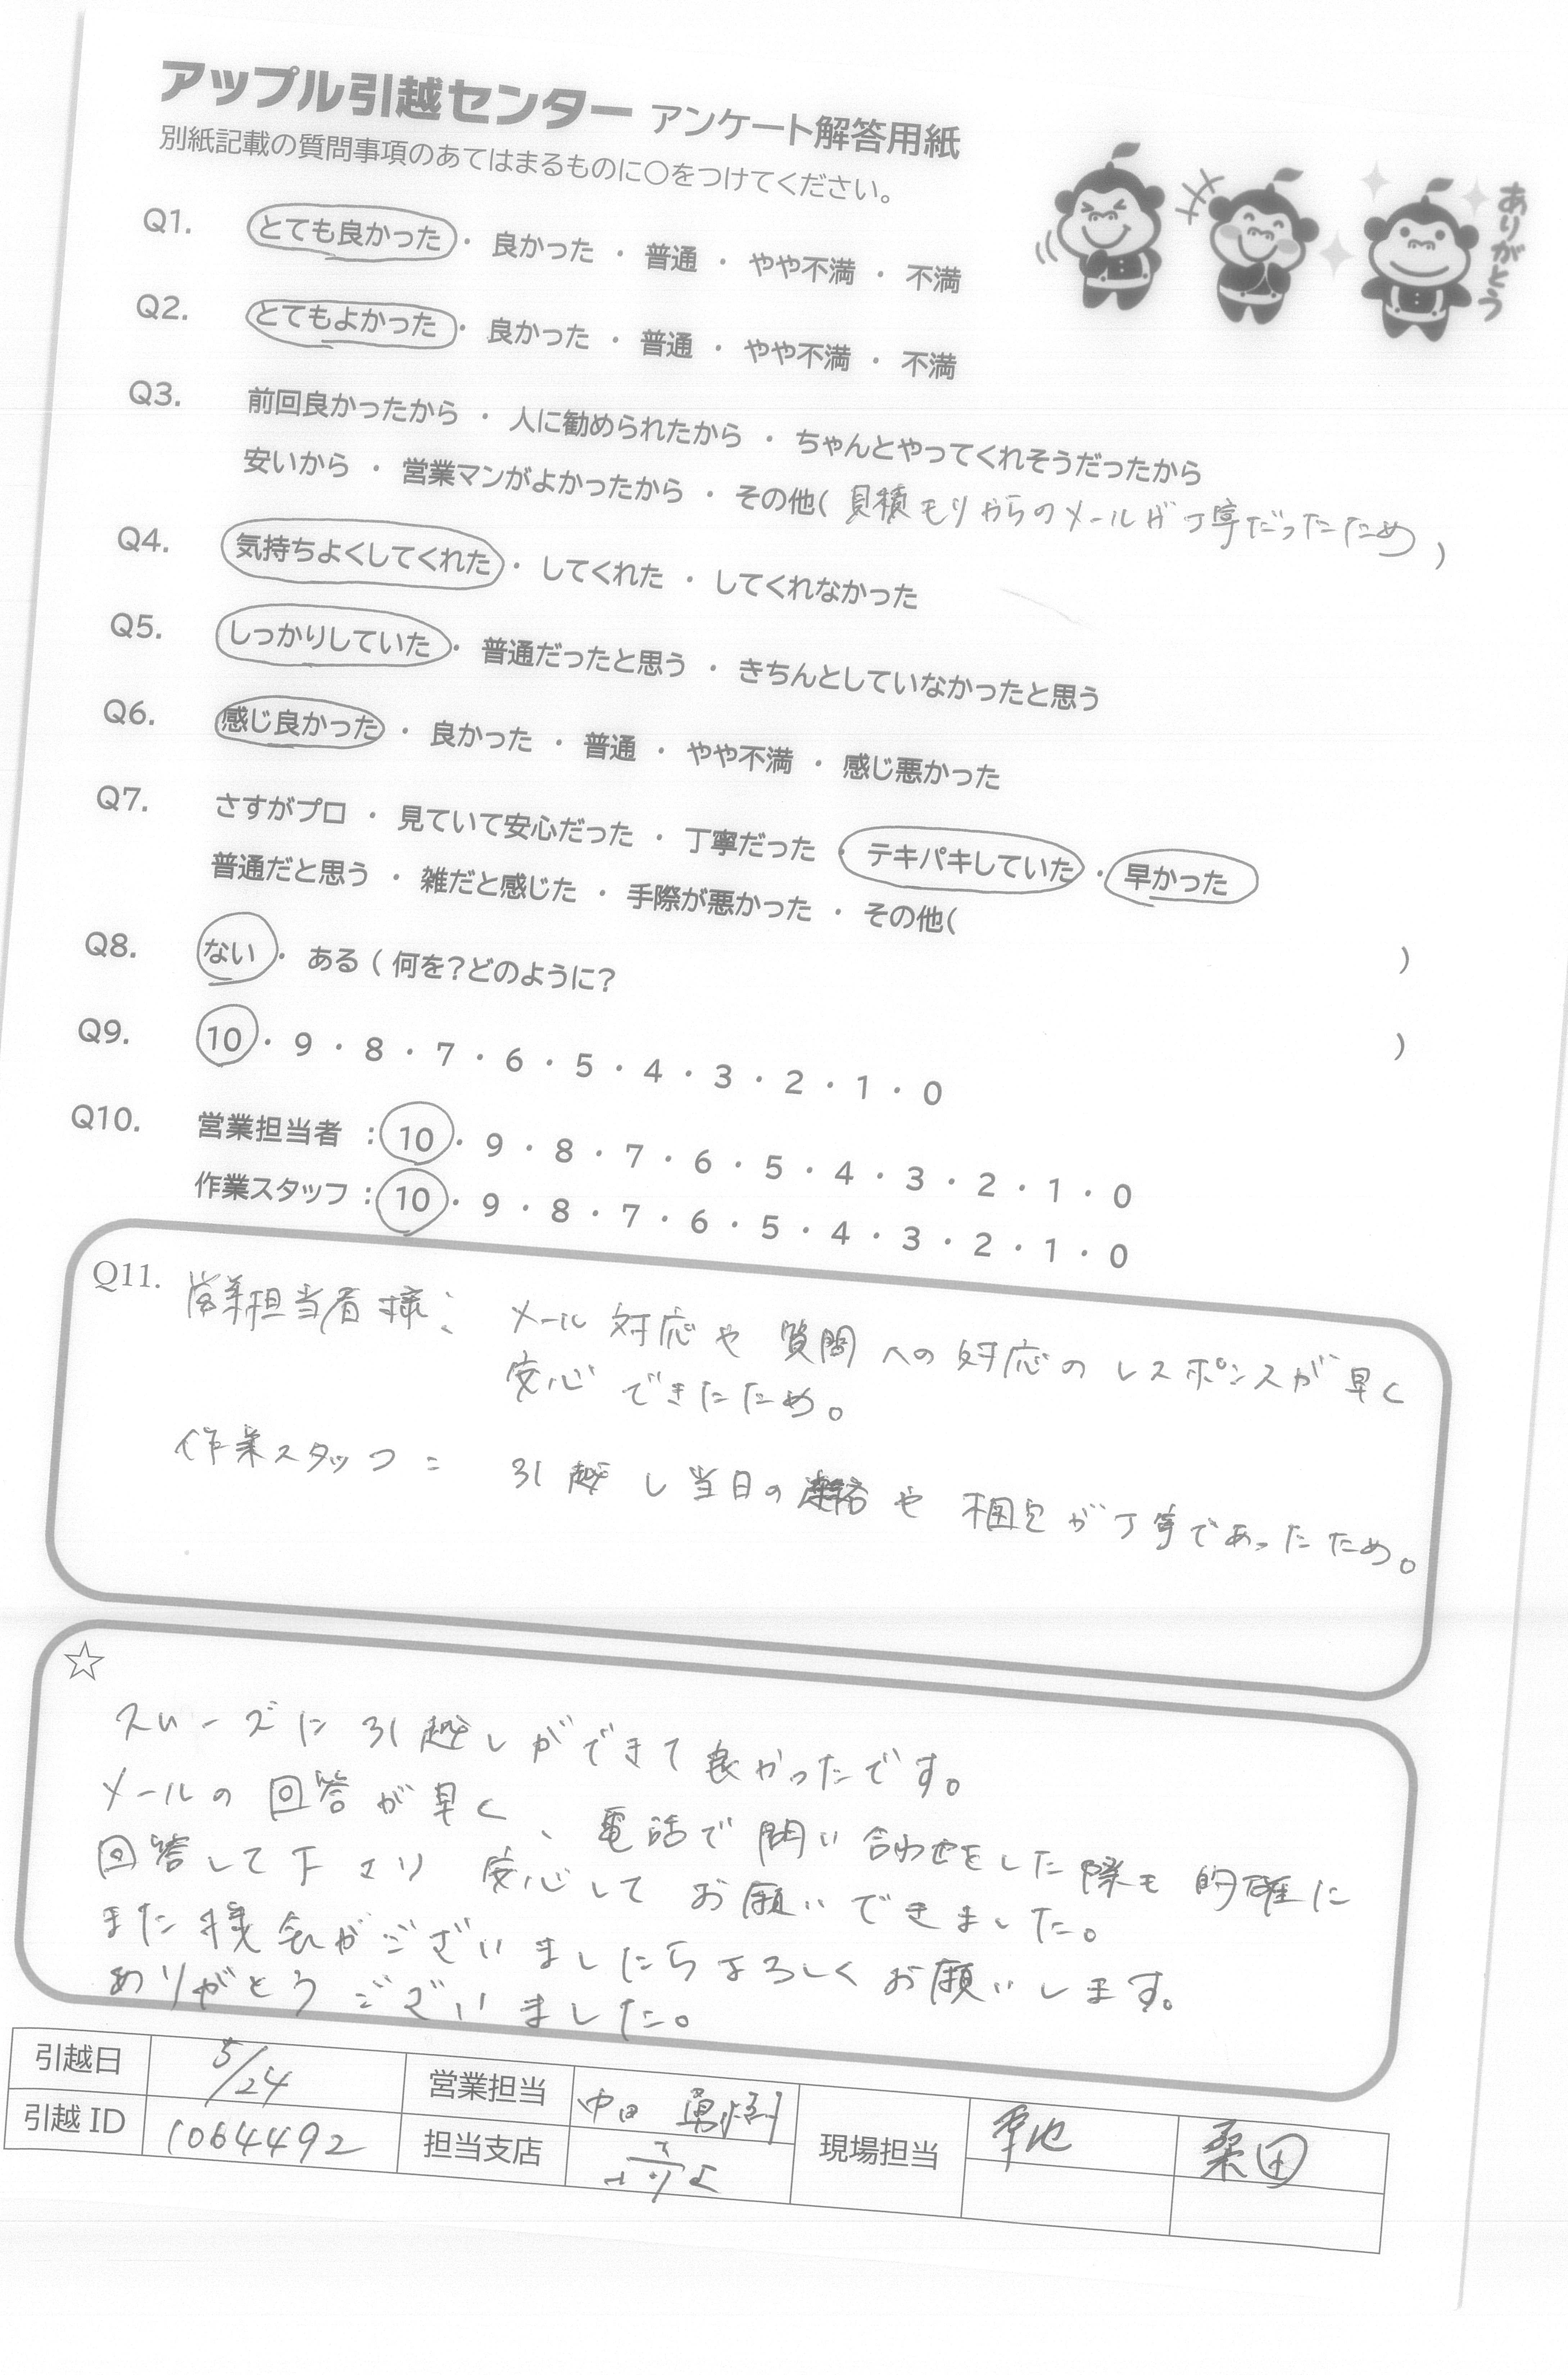 アップル引越センター アンケート解答用紙
別紙記載の質問事項のあてはまるものに〇をつけてください。
ありがとう
Q1. とても良かった ・ 良かった ・ 普通 ・ やや不満 ・ 不満
Q2. とてもよかった ・ 良かった ・ 普通 ・ やや不満 ・ 不満
Q3. 前回良かったから ・ 人に勧められたから ・ ちゃんとやってくれそうだったから
安いから ・ 営業マンがよかったから ・ その他( 見積もりからのメールが丁寧だったため )
Q4. 気持ちよくしてくれた ・ してくれた ・ してくれなかった
Q5. しっかりしていた ・ 普通だったと思う ・ きちんとしていなかったと思う
Q6. 感じ良かった ・ 良かった ・ 普通 ・ やや不満 ・ 感じ悪かった
Q7. さすがプロ ・ 見ていて安心だった ・ 丁寧だった ・ テキパキしていた ・ 早かった
普通だと思う ・ 雑だと感じた ・ 手際が悪かった ・ その他( )
Q8. ない ・ ある ( 何を?どのように? )
Q9. 10 ・ 9 ・ 8 ・ 7 ・ 6 ・ 5 ・ 4 ・ 3 ・ 2 ・ 1 ・ 0
Q10. 営業担当者 : 10 ・ 9 ・ 8 ・ 7 ・ 6 ・ 5 ・ 4 ・ 3 ・ 2 ・ 1 ・ 0
作業スタッフ : 10 ・ 9 ・ 8 ・ 7 ・ 6 ・ 5 ・ 4 ・ 3 ・ 2 ・ 1 ・ 0
Q11. 営業担当者様: メール対応や質問への対応のレスポンスが早く
安心できたため。
作業スタッフ: 引越し当日の連絡や梱包が丁寧であったため。
☆
スムーズに引越しができて良かったです。
メールの回答が早く、電話で問い合わせをした際も的確に
回答して下さり安心してお願いできました。
また機会がございましたらよろしくお願いします。
ありがとうございました。
引越日 5/24 営業担当 中田 現場担当 桑田
引越ID 1064492 担当支店